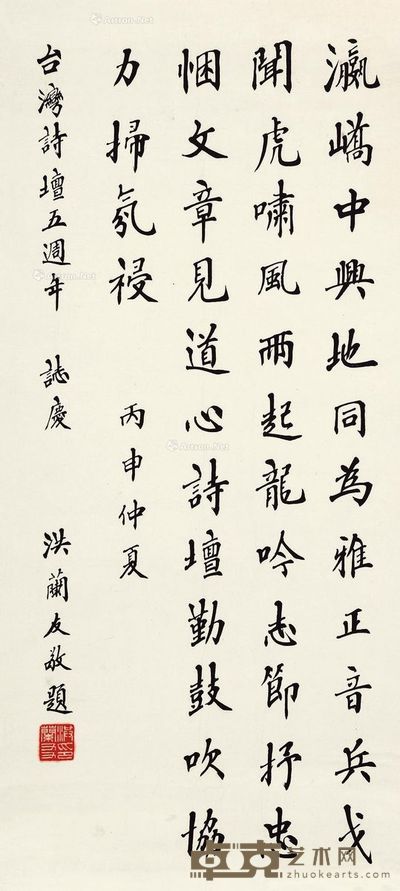 瀛嶠中興地同為雅正音兵戈
聞虎嘯風雨起龍吟志節抒忠
悃文章見道心詩壇勤鼓吹協
力掃氛祲
丙申仲夏
台灣詩壇五週年 誌慶
洪蘭友敬題
卓克艺术网
www.zhuokearts.com